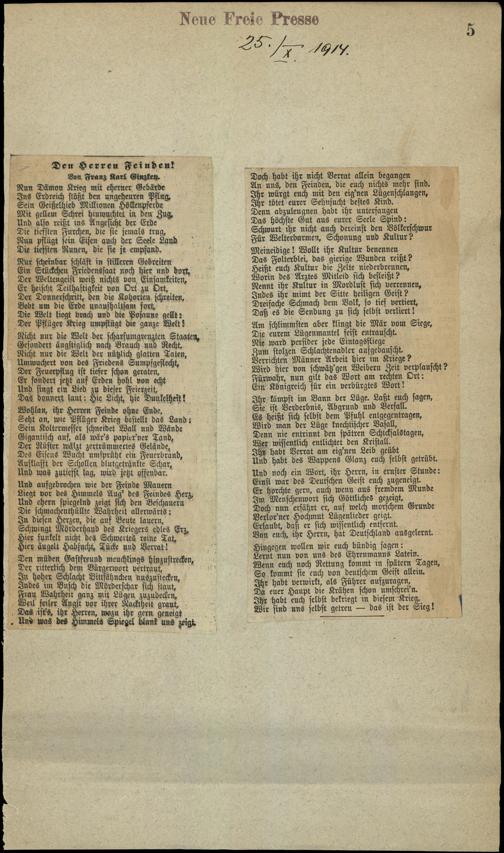 Neue Freie Presse
5
25./X. 1914.
Den Herren Feinden!
Von Franz Karl Ginzkey.
Nun Dämon Krieg mit eherner Gebärde
Ins Erdreich stößt den ungeheuren Pflug,
Sein Geißelhieb Millionen Höllenpferde
Mit gellem Schrei hinwuchtet in den Zug,
Und also reißt ins Angesicht der Erde
Die tiefsten Furchen, die sie jemals trug,
Nun pflügt sein Eisen auch der Seele Land
Die tiefsten Runen, die sie je empfand.
Nur scheinbar schläft in stilleren Gebreiten
Ein Stückchen Friedenssaat noch hier und dort,
Der Weltengeist weiß nichts von Einsamkeiten,
Er heischt Teilhaftigkeit von Ort zu Ort,
Der Donnerschritt, den die Kohorten schreiten,
Bebt um die Erde unaufhaltsam fort,
Die Welt liegt brach und die Posaune gellt:
Der Pflüger Krieg umpflügt die ganze Welt!
Nicht nur die Welt der scharfumgrenzten Staaten,
Gesondert ängstiglich nach Brauch und Recht,
Nicht nur die Welt der nützlich glatten Taten,
Umwuchert von des Friedens Sumpfgeflecht,
Der Feuerpflug ist tiefer schon geraten,
Er sondert jetzt auf Erden hohl von echt
Und singt ein Lied zu dieser Feierzeit,
Das donnert laut: Hie Licht, hie Dunkelheit!
Wohlan, ihr Herren Feinde ohne Ende,
Seht an, wie Pflüger Krieg befiehlt das Land:
Sein Koltermesser schneidet Wall und Wände
Gigantisch auf, als wär's papier'ner Tand,
Der Rüster wälzt zertrümmertes Gelände,
Des Eisens Wucht umsprüht ein Feuerbrand,
Aufklafft der Schollen blutgetränkte Schar,
Und was zutiefst lag, wird jetzt offenbar.
Und aufgebrochen wie der Feinde Mauern
Liegt vor des Himmels Aug' des Feindes Herz,
Und ehern spiegelnd zeigt sich den Beschauern
Die schmachenthüllte Wahrheit allerwärts:
In diesen Herzen, die auf Beute lauern,
Schwingt Mörderhaß des Krieges edles Erz,
Hier funkelt nicht des Schwertes reine Tat,
Hier äugelt Habsucht, Tücke und Verrat!
Den müden Gastfreund meuchlings hinzustrecken,
Der ritterlich dem Bürgerwort vertraut,
In hoher Schlacht Bittfähnchen auszustecken,
Indes im Busch die Mörderschar sich staut,
Frau Wahrheit ganz mit Lügen zuzudecken,
Weil feiler Angst vor ihrer Nacktheit graut,
Das ist's, ihr Herren, wozu ihr gern geneigt
Und was des Himmels Spiegel blank uns zeigt.
Doch habt ihr nicht Verrat allein begangen
An uns, den Feinden, die euch nichts mehr sind.
Ihr würgt euch mit den eig'nen Lügenschlangen,
Ihr tötet eurer Sehnsucht bestes Kind.
Denn abzulengnen habt ihr unterfangen
Das höchste Gut aus eurer Seele Spind:
Schwurt ihr nicht auch dereinst den Völkerschwur
Für Welterbarmen, Schonung und Kultur?
Meineidige! Wollt ihr Kultur benennen
Das Folterblei, das gierige Wunden reißt?
Heißt euch Kultur die Zelte niederbrennen,
Worin des Arztes Mitleid sich befleißt?
Nennt ihr Kultur in Mordlust sich verrennen,
Indes ihr mimt der Sitte heiligen Geist?
Dreifache Schmach dem Volk, so tief vertiert,
Daß es die Sendung zu sich selbst verliert!
Am schlimmsten aber klingt die Mär vom Siege,
Die eurem Lügenmantel feist entrauscht.
Nie ward perfider jede Eintagsfliege
Zum stolzen Schlachtenadler aufgebauscht.
Verrichten Männer Arbeit hier im Kriege?
Wird hier von schwätz'gen Weibern Zeit verplauscht?
Fürwahr, nun gilt das Wort am rechten Ort:
Ein Königreich für ein verbürgtes Wort!
Ihr kämpft im Bann der Lüge. Laßt euch sagen,
Sie ist Verderbnis, Abgrund und Verfall.
Es heißt sich selbst dem Pfuhl entgegentragen,
Wird man der Lüge knechtischer Vasall,
Denn nie entrinnt den spätren Schicksalstagen,
Wer wissentlich entlichtet den Kristall.
Ihr habt Verrat am eig'nen Leib geübt
Und habt des Wappens Glanz euch selbst getrübt.
Und noch ein Wort, ihr Herrn, in ernster Stunde:
Einst war des Deutschen Geist euch zugeneigt.
Er horchte gern, auch wenn aus fremdem Munde
Im Menschenwort sich Göttliches gezeigt.
Doch nun erfährt er, auf welch morschem Grunde
Verlor'ner Hochmut Lügenlieder geigt.
Erlaubt, daß er sich wissentlich entfernt.
Von euch, ihr Herrn, hat Deutschland ausgelernt.
Hingegen wollen wir euch bündig sagen:
Lernt nun von uns des Ehrenmanns Latein.
Wenn euch noch Rettung kommt in spätren Tagen,
So kommt sie euch von deutschem Geist allein.
Ihr habt verwirkt, als Führer aufzuragen,
Da euer Haupt die Krähen schon umschrei'n.
Ihr habt euch selbst besiegt in diesem Krieg.
Wir sind uns selbst getreu — das ist der Sieg!